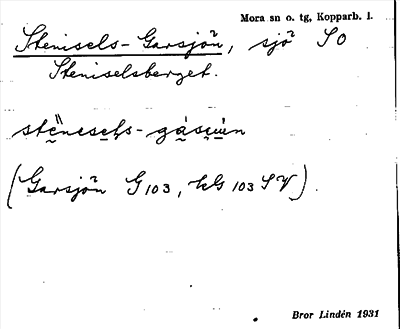 Mora sn o. tg, Kopparb. l.
Stenisels-Garsjön, sjö SO
Steniselsberget.
(Garsjön G 103, kG 103 SV).
Bror Lindén 1931